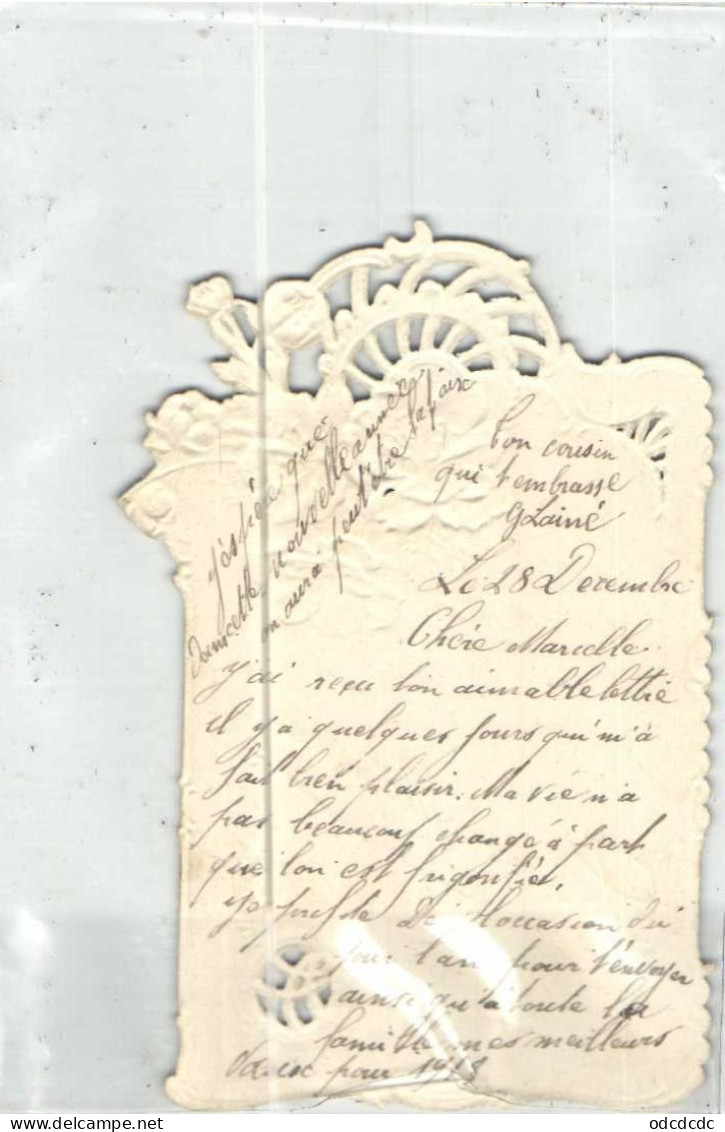 Le 28 Decembre
Chère Marcelle
j'ai reçu ton aimable lettre
il y a quelques jours qui m'à
fait bien plaisir. Ma vie n'a
pas beaucoup changé à part
que l'on est frigorifié.
Je profite De l'occasion du
jour l'an pour t'envoyer
ainsi qu'à toute la
famille mes meilleurs
Vœux pour 1918
j'éspére que
Dans cette nouvelle année
on aura peut être la paix
ton cousin
qui t'embrasse
G Lainé
odcdcdc